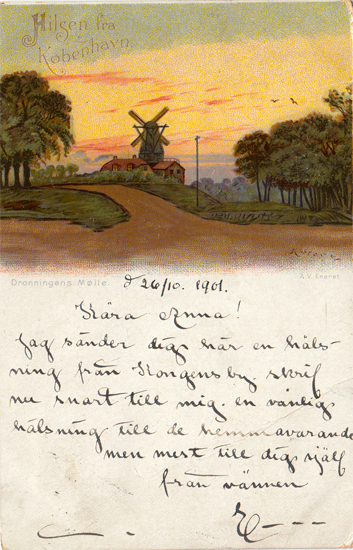 Hilsen fra
København
Dronningens Mølle
d 26/10. 1901.
Kära Anna!
Jag sänder dig här en häls-
ning från Kongensby. skrif
nu snart till mig. en vänlig
hälsning till de hemmavarande
men mest till dig själf
från vännen
E----